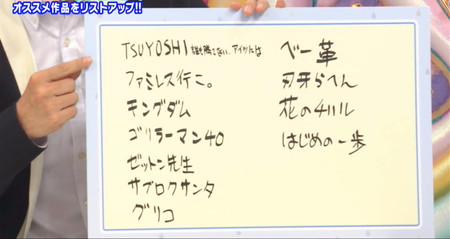 オススメ作品をリストアップ!!
TSUYOSHI 誰も勝てない、アイツには
ファミレス行こ。
キングダム
ゴリラーマン40
ゼットン先生
サブロクサンタ
グリコ
べー革
刃牙らへん
花の4ハル
はじめの一歩